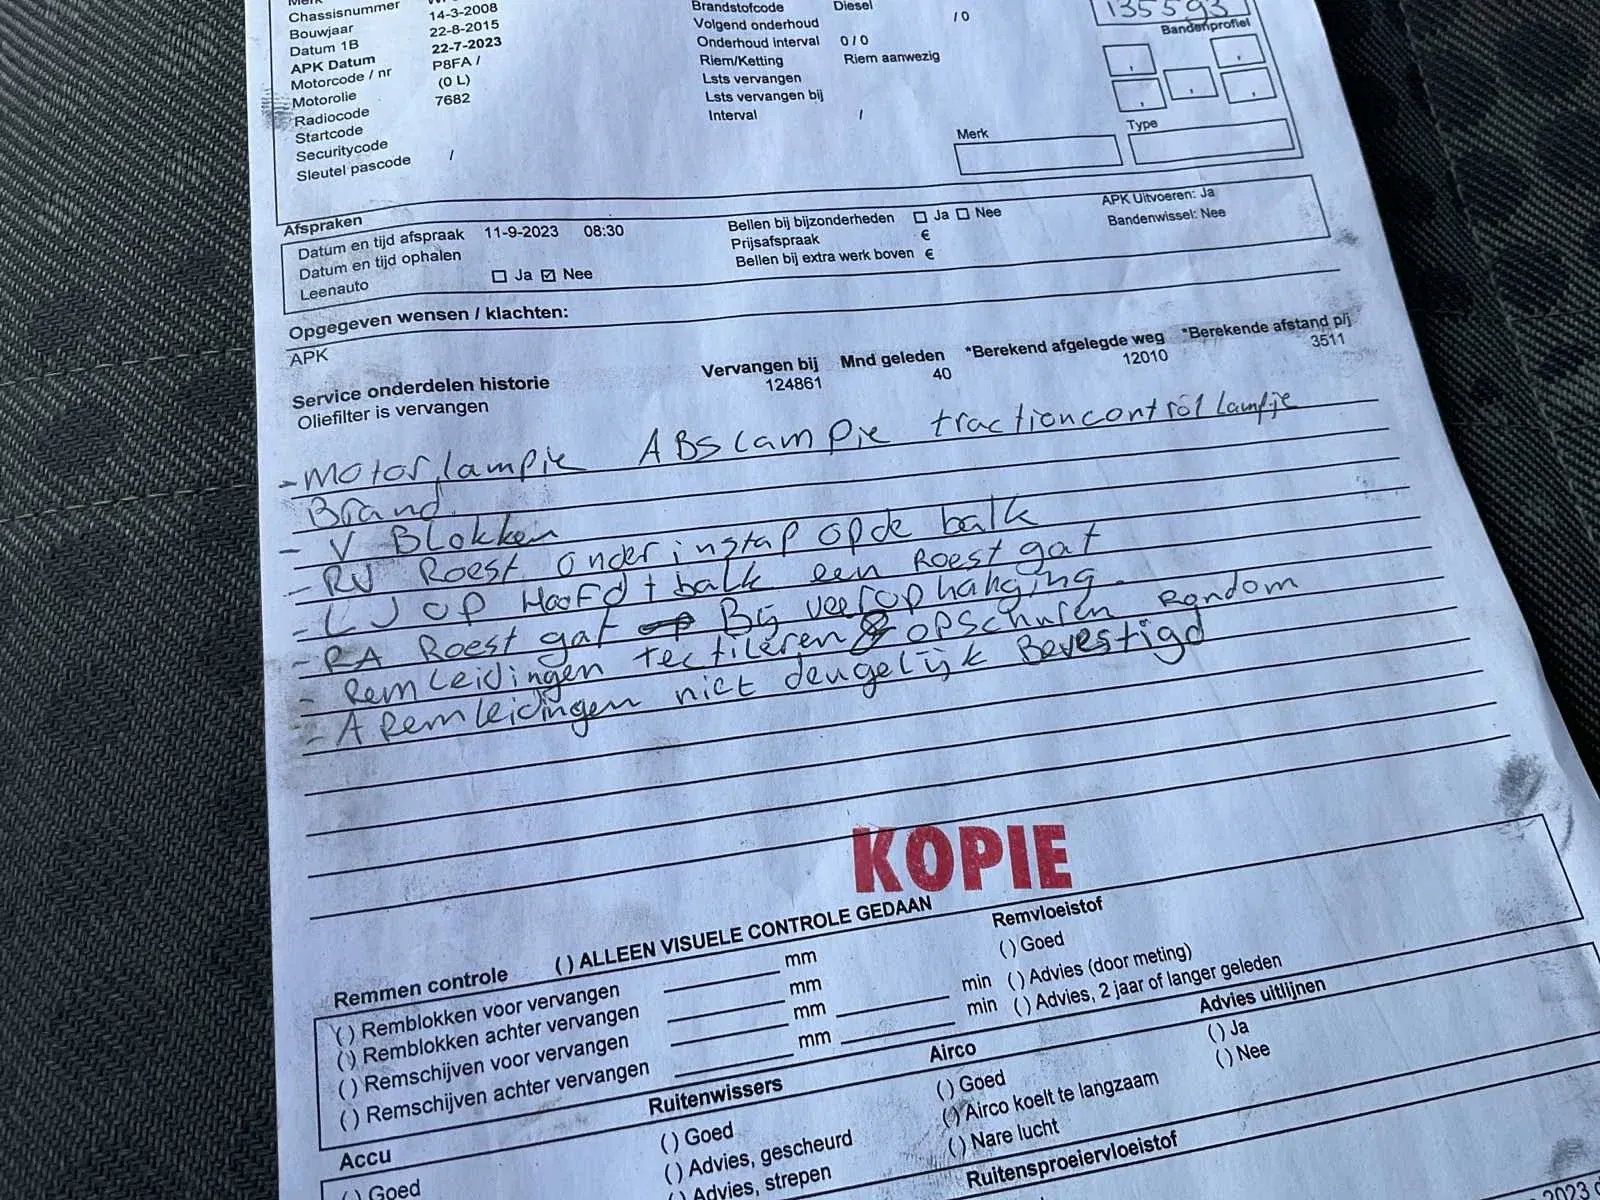 Merk
Chassisnummer
Bouwjaar 14-3-2008
Datum 1B 22-8-2015
APK Datum 22-7-2023
Motorcode / nr P8FA /
Motorolie (0 L)
Radiocode 7682
Startcode
Securitycode
Sleutel pascode /
Brandstofcode Diesel
Volgend onderhoud / 0
Onderhoud interval 0 / 0
Riem/Ketting Riem aanwezig
Lsts vervangen
Lsts vervangen bij
Interval /
135593
Bandenprofiel
, ,
, , ,
Merk Type
Afspraken
Datum en tijd afspraak 11-9-2023 08:30
Datum en tijd ophalen
Leenauto Ja Nee
Bellen bij bijzonderheden Ja Nee
Prijsafspraak €
Bellen bij extra werk boven €
APK Uitvoeren: Ja
Bandenwissel: Nee
Opgegeven wensen / klachten:
APK
Service onderdelen historie Vervangen bij Mnd geleden *Berekend afgelegde weg *Berekende afstand p/j
Oliefilter is vervangen 124861 40 12010 3511
- Motorlampje ABS lampje tractioncontrol lampje
Brand.
- V Blokken
- RV Roest onder instap op de balk
- LV op Hoofd+balk een Roest gat
- RA Roest gat Bij veerophanging.
- Remleidingen tectileren & opschuren Rondom
- A Remleidingen niet deugelijk Bevestigd
KOPIE
Remmen controle ( ) ALLEEN VISUELE CONTROLE GEDAAN
( ) Remblokken voor vervangen mm
( ) Remblokken achter vervangen mm
( ) Remschijven voor vervangen mm min
( ) Remschijven achter vervangen mm min
Remvloeistof
( ) Goed
( ) Advies (door meting)
( ) Advies, 2 jaar of langer geleden
Accu
( ) Goed
Ruitenwissers
( ) Goed
( ) Advies, gescheurd
( ) Advies, strepen
Airco
( ) Goed
( ) Airco koelt te langzaam
( ) Nare lucht
Ruitensproeiervloeistof
Advies uitlijnen
( ) Ja
( ) Nee
2023